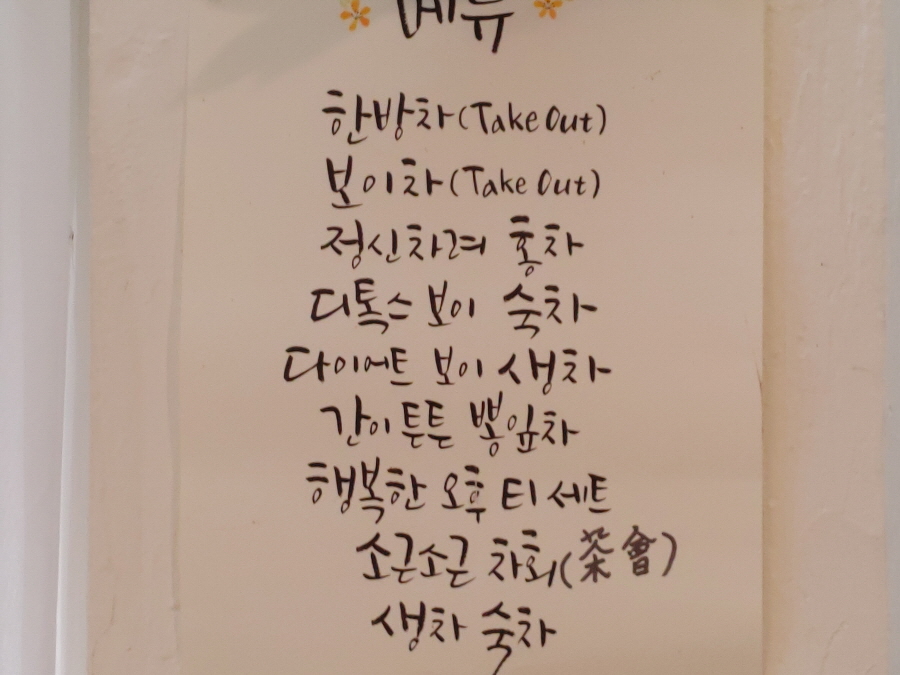 메뉴
한방차(Take Out)
보이차(Take Out)
정신차려 홍차
디톡스 보이 숙차
다이어트 보이 생차
간이튼튼 뽕잎차
행복한 오후 티 세트
소근소근 차회(茶會)
생차 숙차